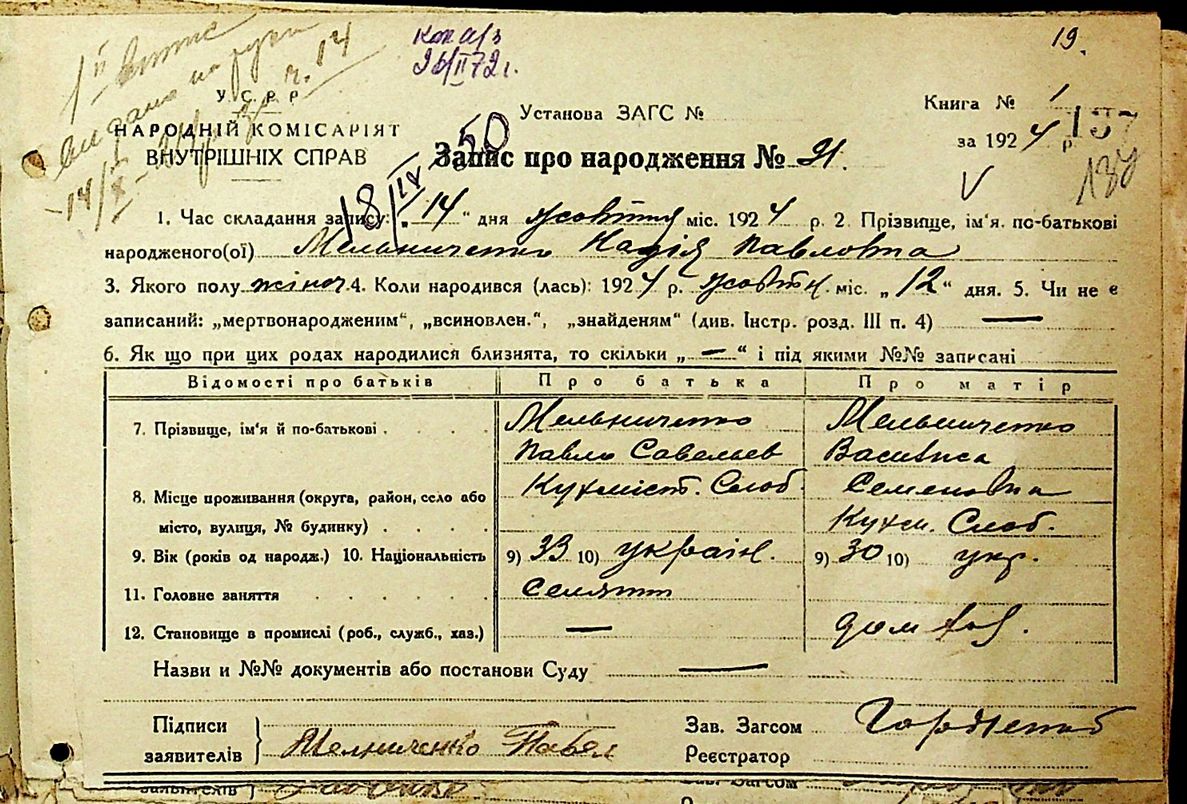 19.
1й витяг
видано на руки
14/X - 24 р. за ч. 14
коп а/з
26/II 72 г.
У.С.Р.Р.
НАРОДНІЙ КОМІСАРІЯТ
ВНУТРІШНІХ СПРАВ
Установа ЗАГС №
Книга № 1
за 1924 р.
137
137
18/IX 50
Запис про народження № 21.
1. Час складання запису: „14“ дня жовтня міс. 1924 р. 2. Прізвище, ім'я, по-батькові
народженого(ої) Мельниченко Надія Павловна
3. Якого полу жіноч. 4. Коли народився (лась): 1924 р. жовтн. міс. „12“ дня. 5. Чи не є
записаний: „мертвонародженим“, „всиновлен.“, „знайденям“ (див. Інстр. розд. III п. 4) —
6. Як що при цих родах народилися близнята, то скільки „—“ і під якими №№ записані
Відомості про батьків Про батька Про матір
7. Прізвище, ім'я й по-батькові Мельниченко Мельниченко
Павло Савельев Василиса
8. Місце проживання (округа, район, село або Кухміст. Слоб. Семеновна
місто, вулиця, № будинку) Кухм. Слоб.
9. Вік (років од народж.) 10. Національність 9) 33 10) україн. 9) 30 10) укр.
11. Головне заняття селянин
12. Становище в промислі (роб., служб., хаз.) — дом хоз.
Назви и №№ документів або постанови Суду —
Підписи Зав. Загсом Гордиенко
заявителів Мелниченко Павел Реєстратор
заявителів Зав. Загсом